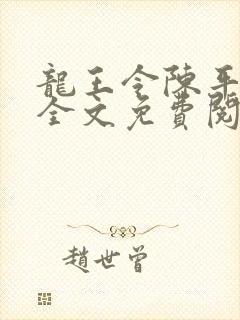 龍王令陳平
全文免費閱
趙世曾